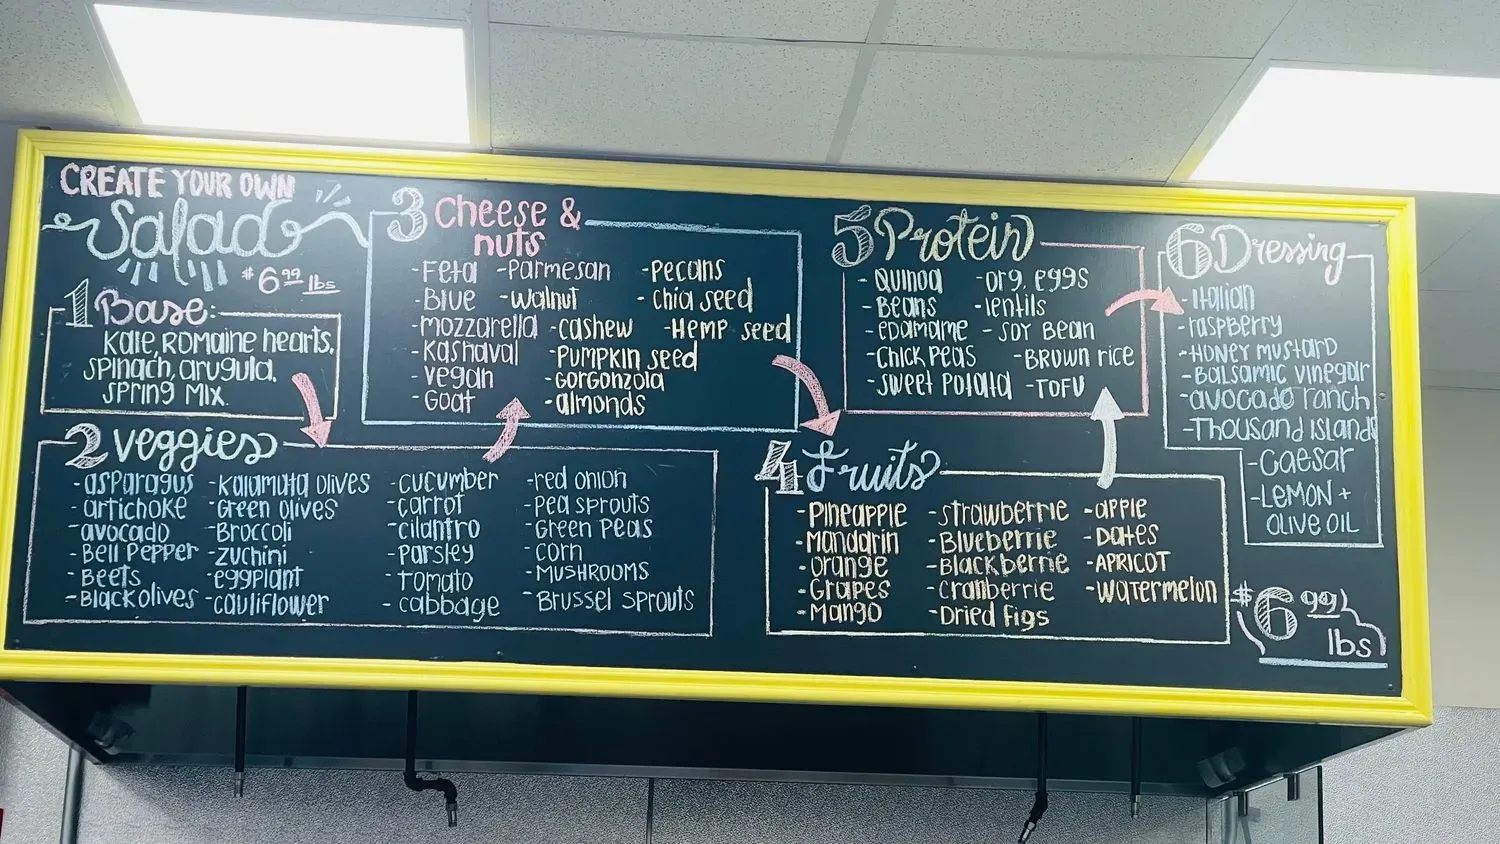 CREATE YOUR OWN
Salad
$6.99 lbs
1 Base:
Kale, ROMAINE hearts,
SPINACH, arugula,
SPRING MIX.
2 veggies
-asparagus
-artichoke
-avocado
-Bell Pepper
-BEETS
-Black olives
-Kalamata olives
-Green olives
-Broccoli
-zuchini
-eggplant
-cauliflower
-cucumber
-carrot
-cilantro
-Parsley
-Tomato
-cabbage
-red onion
-Pea sprouts
-Green Peas
-corn
-MUSHROOMS
-Brussel sprouts
3 Cheese &
nuts
-Feta
-Blue
-mozzarella
-Kashaval
-vegan
-Goat
-Parmesan
-walnut
-cashew
-Pumpkin seed
-Gorgonzola
-almonds
-Pecans
-Chia seed
-Hemp seed
4 Fruits
-Pineapple
-Mandarin
-orange
-Grapes
-Mango
-strawberrie
-Blueberrie
-Blackberrie
-cranberrie
-Dried Figs
-apple
-Dates
-APRICOT
-watermelon
5 Protein
-Quinoa
-Beans
-edamame
-Chick peas
-sweet potato
-org. eggs
-lentils
-SOY Bean
-Brown rice
-TOFU
6 Dressing
-Italian
-raspberry
-HONEY MUSTARD
-Balsamic vinegar
-avocado ranch
-THOUSAND ISLAND
-Caesar
-LEMON +
OLIVE OIL
$6.99
lbs